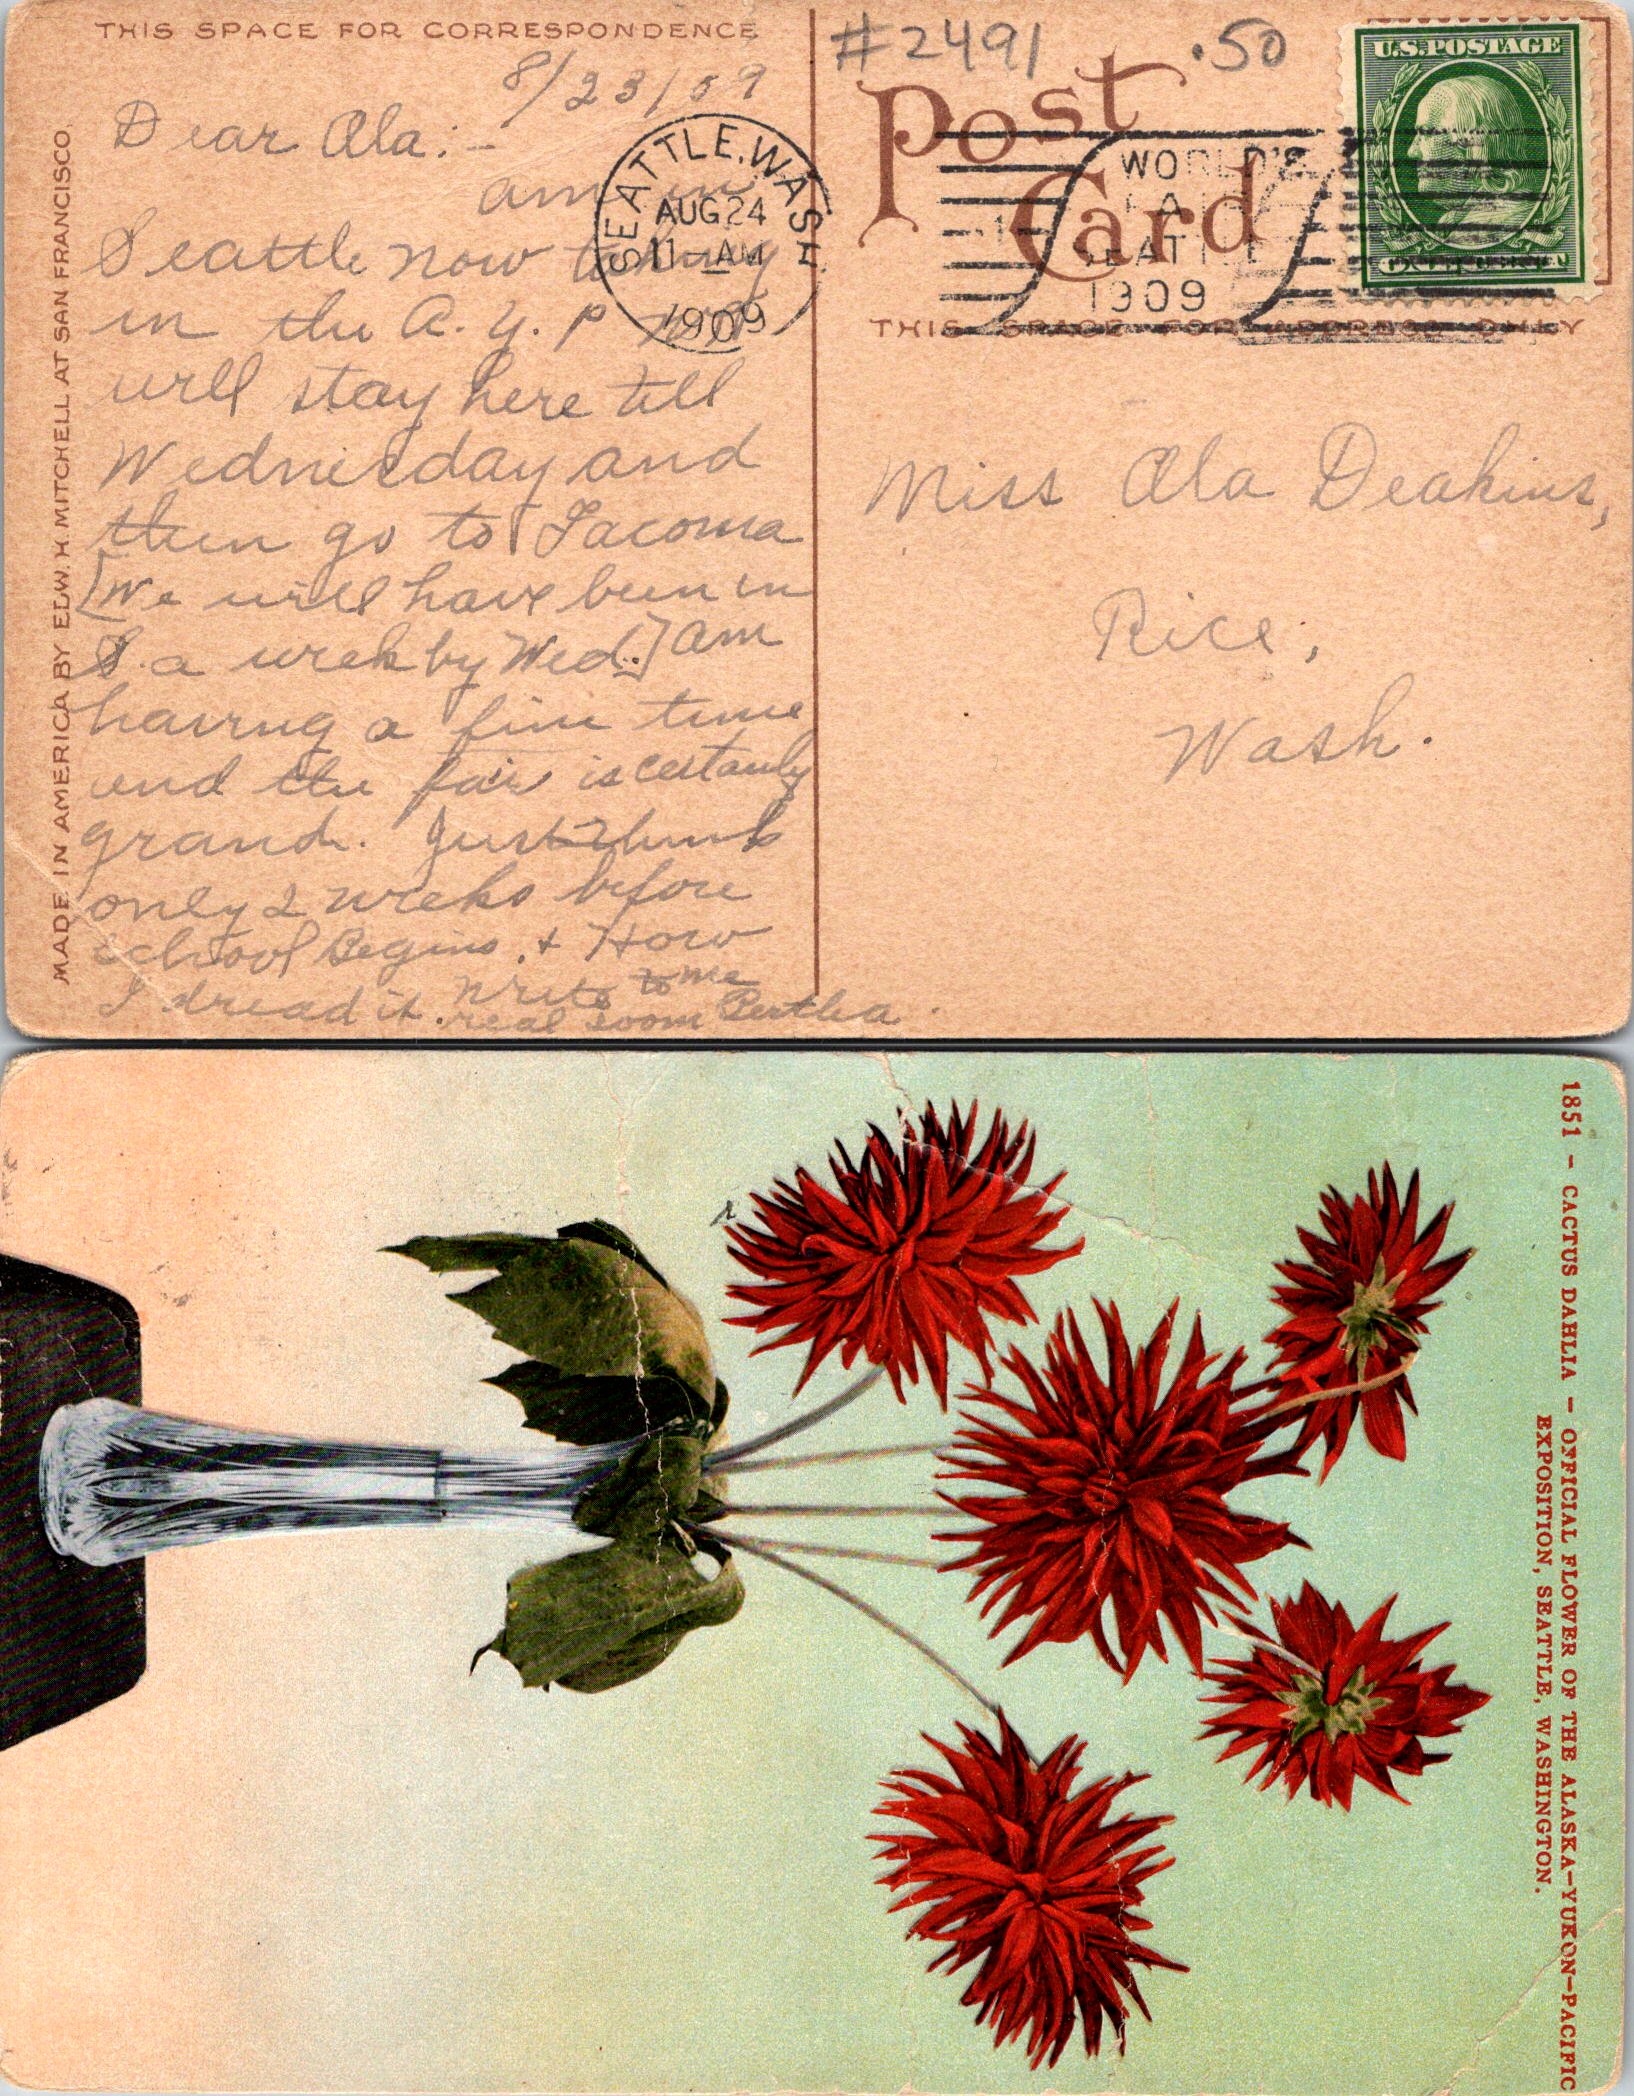 THIS SPACE FOR CORRESPONDENCE
#2491 .50
8/23/09
Dear Ala:-
am in
Seattle now taking
in the A. Y. P.
will stay here till
Wednesday and
then go to Tacoma
[We will have been in
S. a week by Wed.] am
having a fine time
and the fair is certainly
grand. Just think
only 2 weeks before
school Begins. + How
I dread it. Write to me
real soon Bertha.
MADE IN AMERICA BY EDW. H. MITCHELL AT SAN FRANCISCO.
Post
Card
U.S. POSTAGE
ONE CENT
SEATTLE, WASH
AUG 24
11-AM
1909
WORLD'S
FAIR
SEATTLE
1909
THIS SPACE FOR ADDRESS ONLY
Miss Ala Deakins,
Rice,
Wash.
1851 - CACTUS DAHLIA - OFFICIAL FLOWER OF THE ALASKA-YUKON-PACIFIC
EXPOSITION, SEATTLE, WASHINGTON.